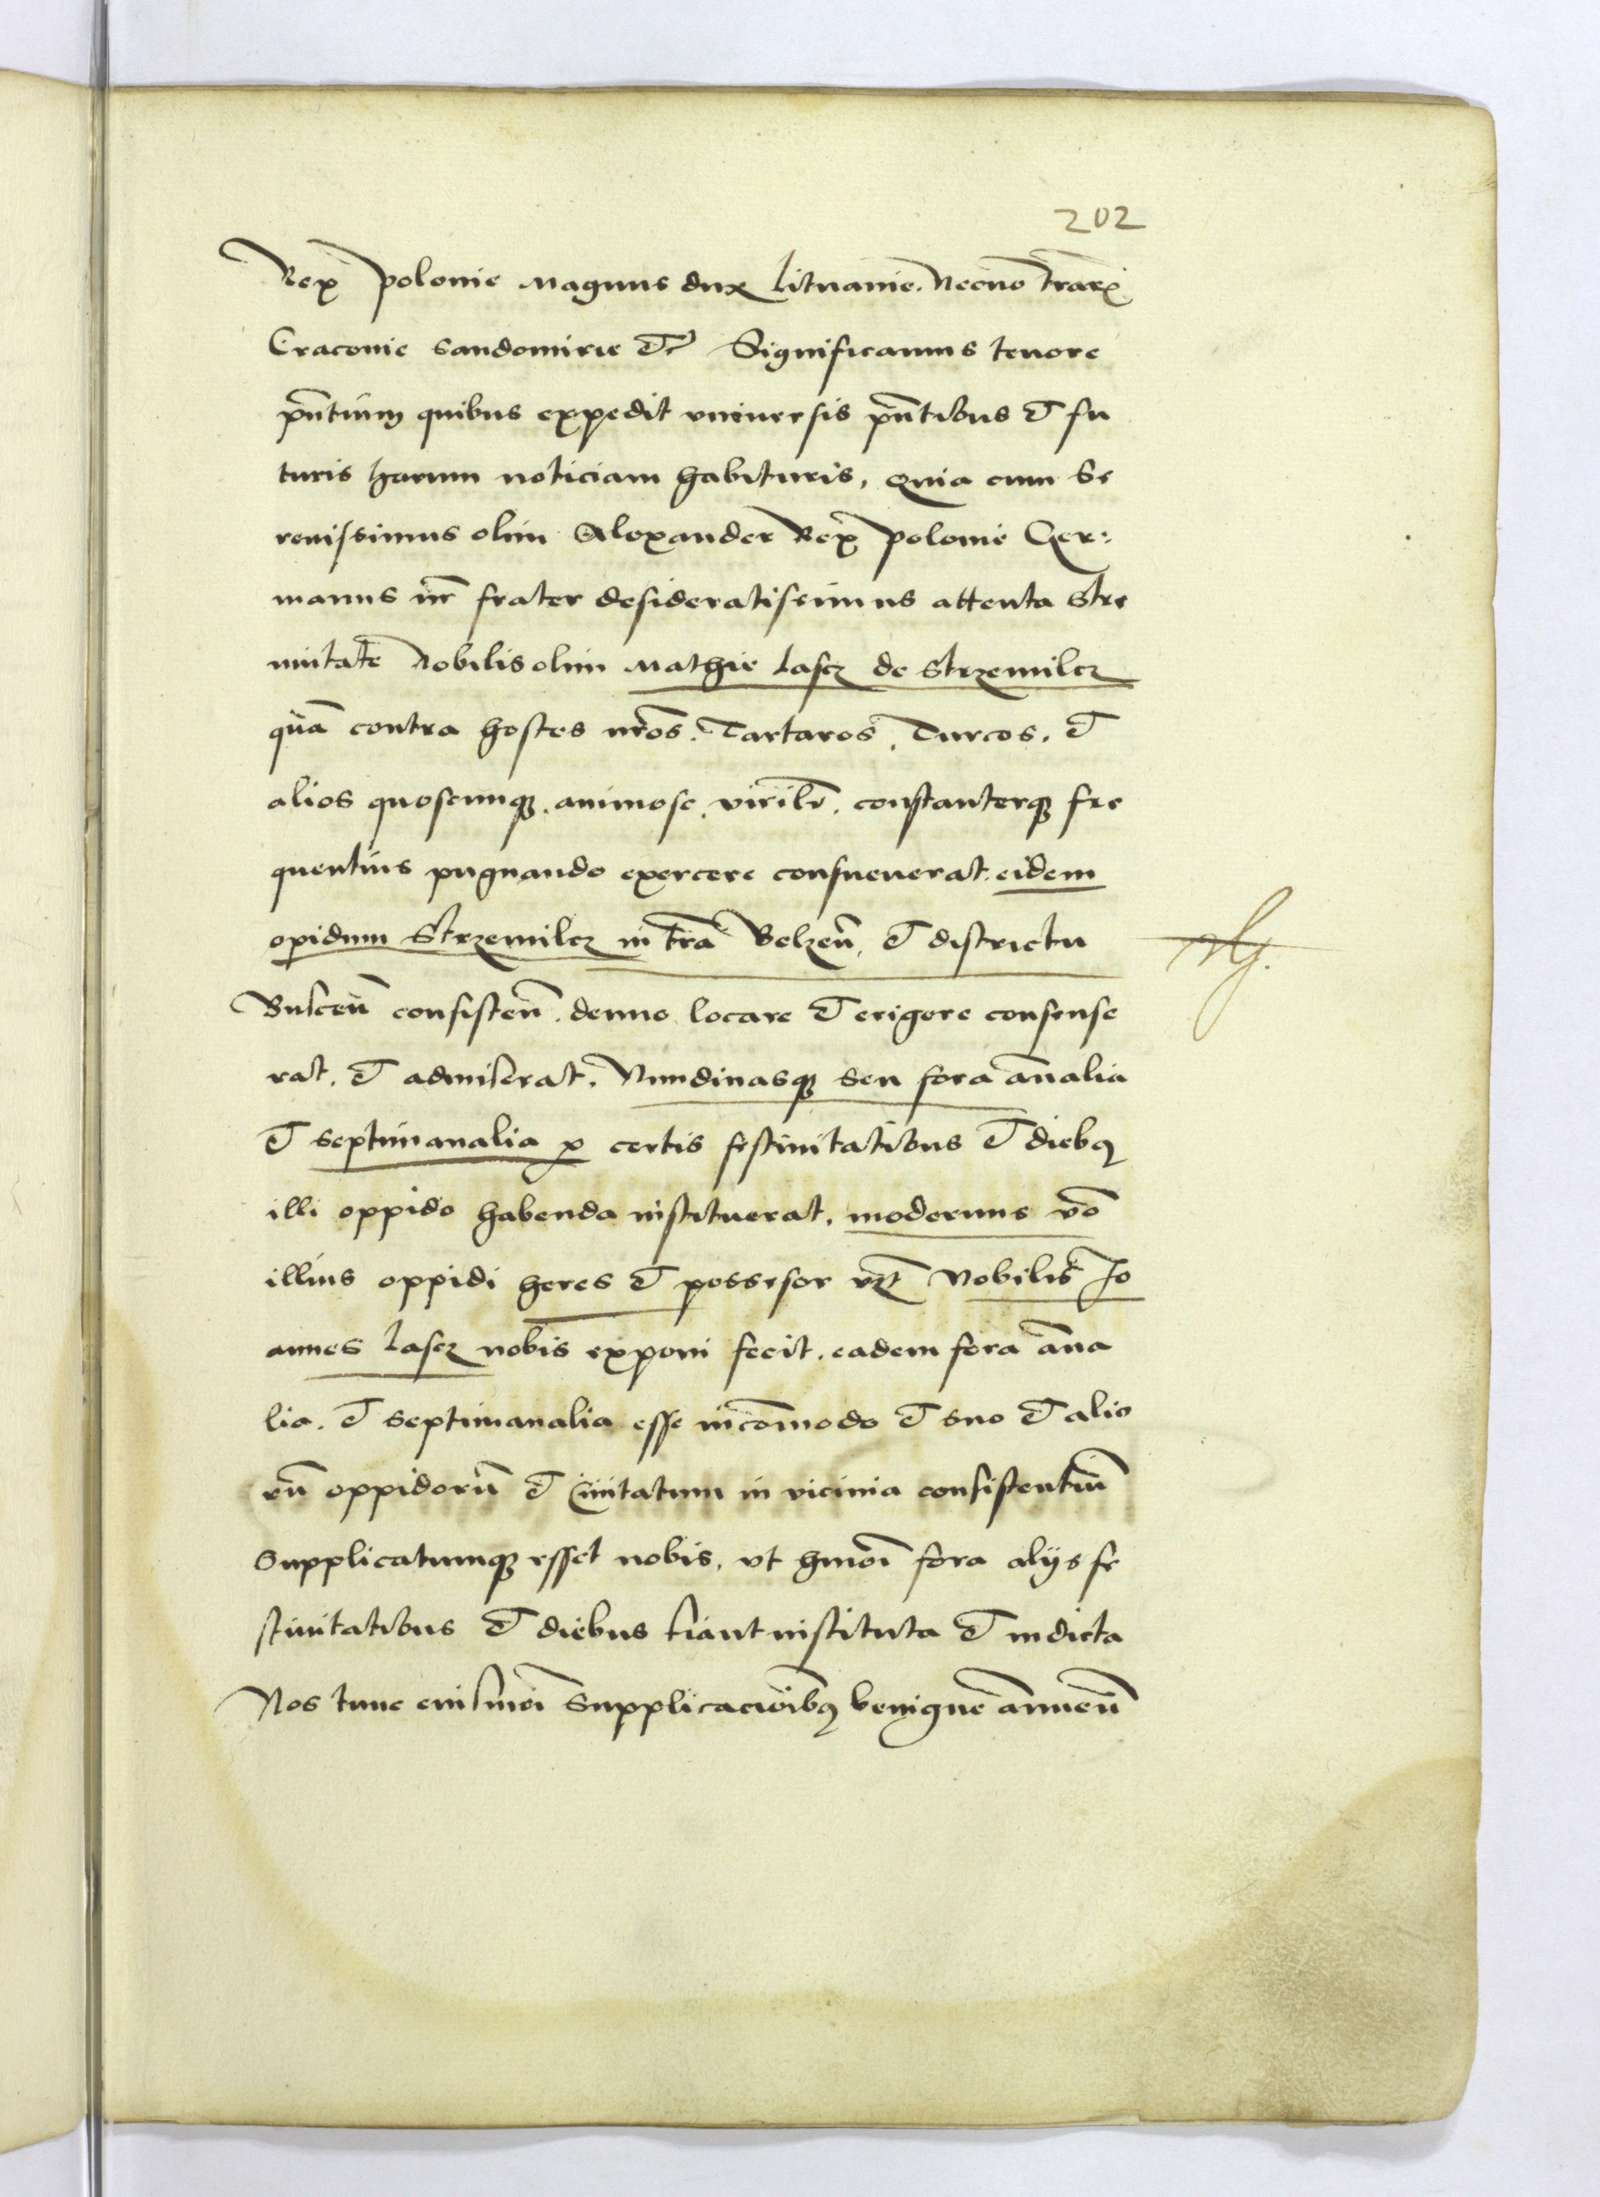 202
Rex polonie Magnus dux lituanie. Necno trarꝝ
Craconie sandomirie &c Significamus tenore
pñtium quibus expedit vniuersis pñtibus & fu
turis harum noticiam habituris, Quia cum Se
renissimus olim Alexander Rex polonie Ger:
manus nr̃ frater desideratissimus attenta Stre
nuitate Nobilis olim Mathie lascz de Strzemilcz
quã contra hostes nr̃os. Tartaros, Turcos, &
alios quoscunqꝫ. animose. virilr̃. constanterqꝫ fre
quentius pugnando exercere consueuerat. eidem
opidum Strzemilcz in tr̃a Belzeñ. & districtu
Busceñ consisteñ. denuo locare & erigere consense
rat. & admiserat. Nundinasqꝫ seu fora añalia
& septimanalia ꝓ certis festiuitatibus & diebꝫ
illi oppido habenda instituerat. modernus vo
illius oppidi heres & possesor vꝫt Nobilis Jo
annes lascz nobis exponi fecit. eadem fora añua
lia. & septimanalia esse incõmodo & suo & alio
rũ oppidorũ & Ciuitatum in vicinia consistentiũ
Supplicatumqꝫ esset nobis, vt hmõi fora alijs fe
stiuitatibus & diebus fiant instituta & indicta
Nos tunc euismõi Supplicacioibꝫ benigne annueñ